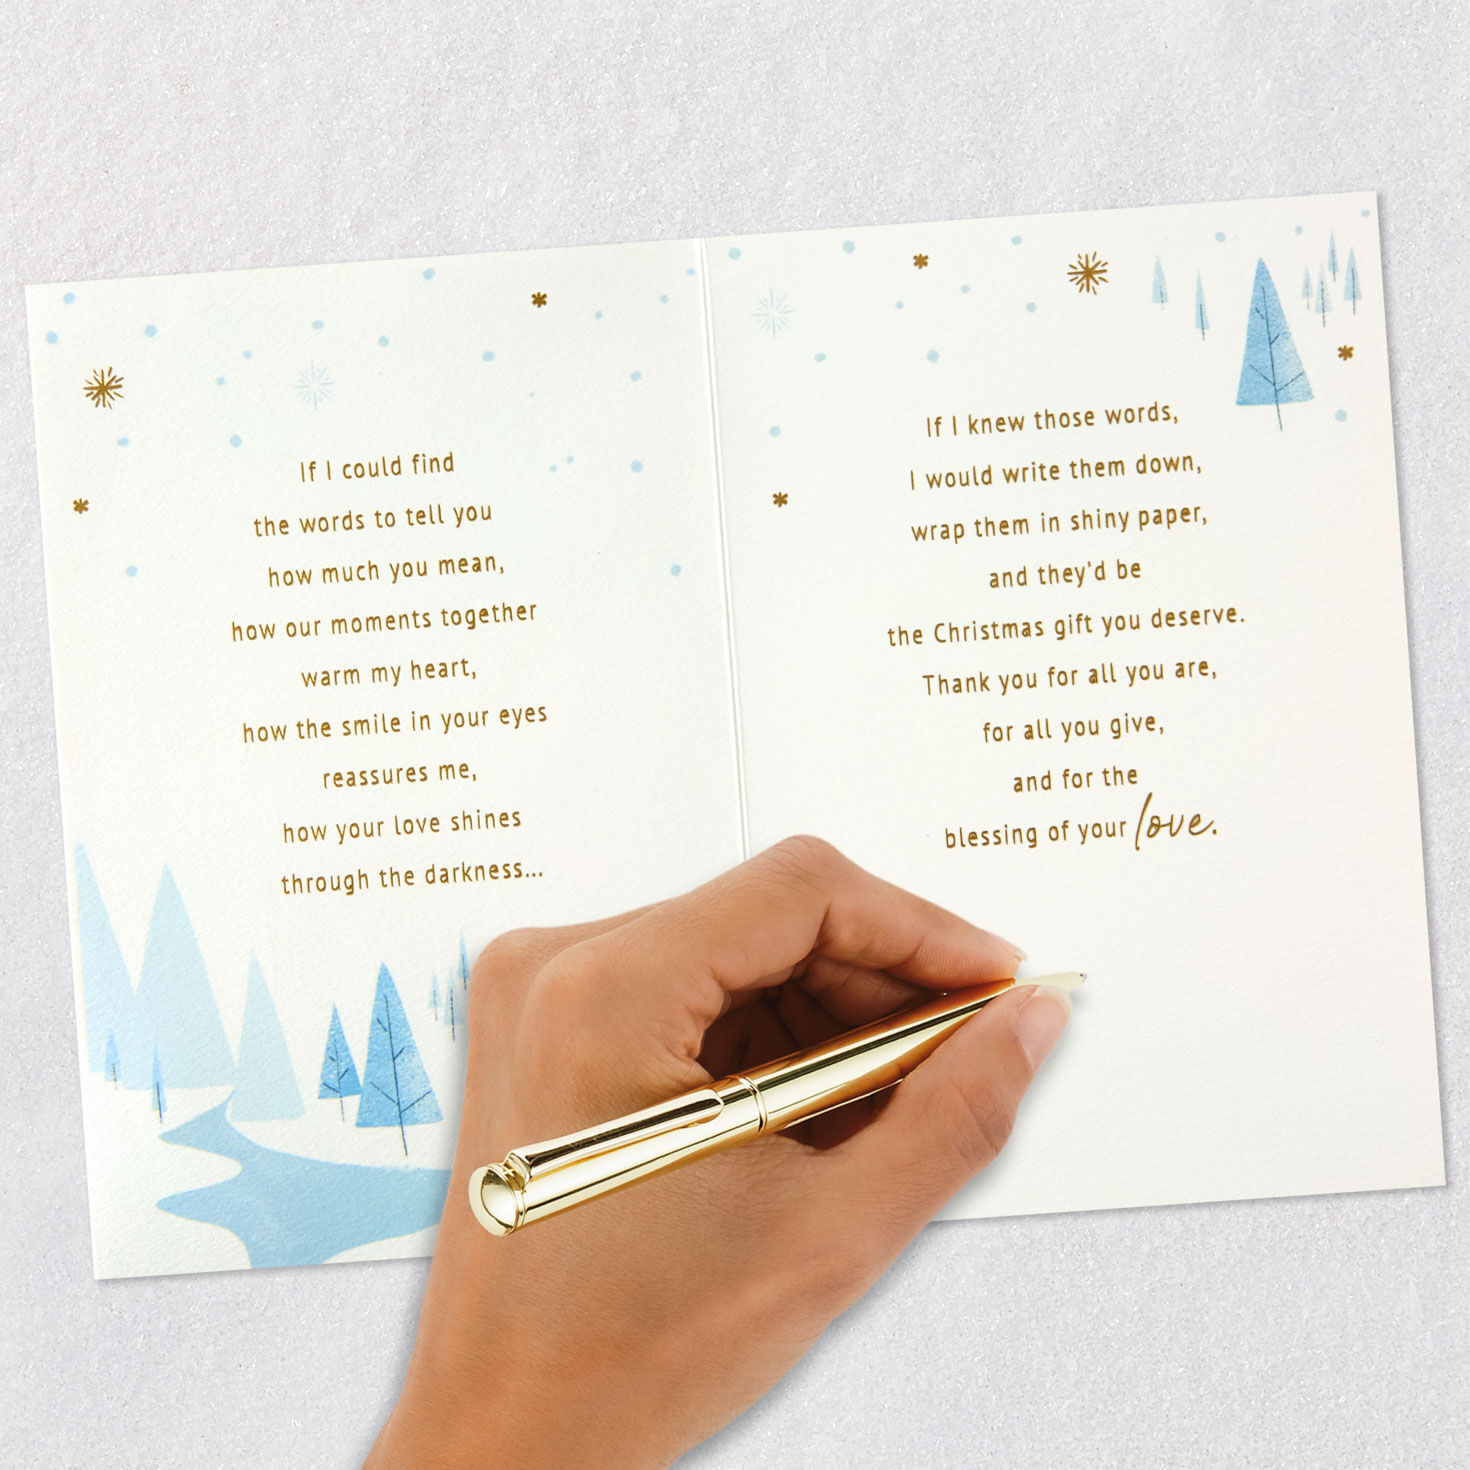 If I could find
the words to tell you
how much you mean,
how our moments together
warm my heart,
how the smile in your eyes
reassures me,
how your love shines
through the darkness...
If I knew those words,
I would write them down,
wrap them in shiny paper,
and they'd be
the Christmas gift you deserve.
Thank you for all you are,
for all you give,
and for the
blessing of your love.